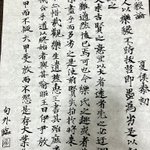 毅論
夏侯泰初
人多以樂毅不時拔莒即墨為劣是以
夫求古賢之意宜以大者遠者先之必迂
難通然後已焉可也今樂氏之趣或者
而多劣之是使前賢失指於將来不
惜哉觀樂生遺燕惠王書其殆庶
乎道以終始者與其喻昭王曰伊尹放
甲而不疑大甲受放而不怨是存大業
句外臨